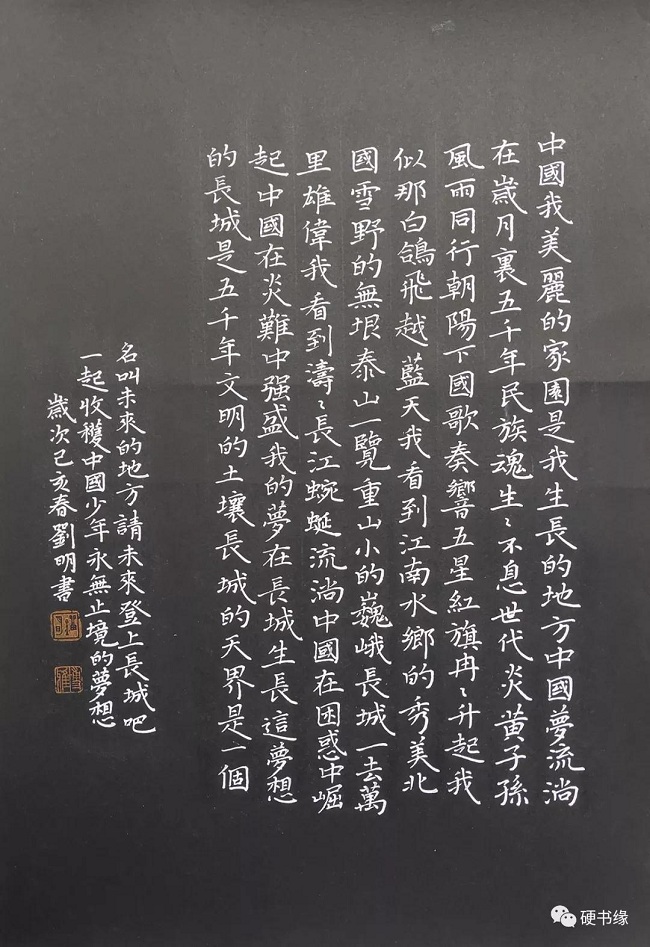 中國我美麗的家園是我生長的地方中國夢流淌
在歲月裏五千年民族魂生〻不息世代炎黄子孫
風雨同行朝陽下國歌奏響五星紅旗冉〻升起我
似那白鴿飛越藍天我看到江南水鄉的秀美北
國雪野的無垠泰山一覽重山小的巍峨長城一去萬
里雄偉我看到濤〻長江蜿蜒流淌中國在困惑中崛
起中國在炎難中强盛我的夢在長城生長這夢想
的長城是五千年文明的土壤長城的天界是一個
名叫未來的地方請未來登上長城吧
一起收穫中國少年永無止境的夢想
歲次己亥春劉明書
硬书缘